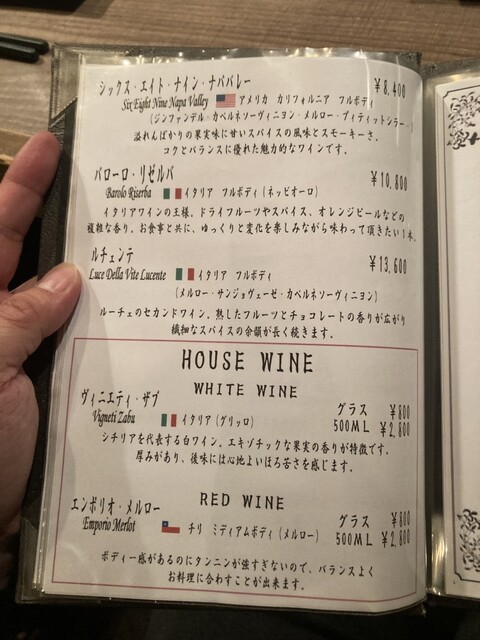 シックス・エイト・ナイン・ナパバレー ¥8,400
Six Eight Nine Napa Valley アメリカ カリフォルニア フルボディ
(ジンファンデル・カベルネソーヴィニヨン・メルロー・プティットシラー)
溢れんばかりの果実味に甘いスパイスの風味とスモーキーさ。
コクとバランスに優れた魅力的なワインです。
バローロ・リゼルバ ¥10,800
Barolo Riserba イタリア フルボディ(ネッビオーロ)
イタリアワインの王様。ドライフルーツやスパイス、オレンジピールなどの
複雑な香り。お食事と共に、ゆっくりと変化を楽しみながら味わって頂きたい1本。
ルチェンテ ¥13,600
Luce Della Vite Lucente イタリア フルボディ
(メルロー・サンジョヴェーゼ・カベルネソーヴィニヨン)
ルーチェのセカンドワイン。熟したフルーツとチョコレートの香りが広がり
繊細なスパイスの余韻が長く続きます。
HOUSE WINE
WHITE WINE
ヴィニエティ・ザブ グラス ¥800
Vigneti Zabu イタリア(グリッロ) 500ML ¥2,800
シチリアを代表する白ワイン。エキゾチックな果実の香りが特徴です。
厚みがあり、後味には心地よいほろ苦さを感じます。
RED WINE
エンポリオ・メルロー グラス ¥800
Emporio Merlot チリ ミディアムボディ(メルロー) 500ML ¥2,800
ボディー感があるのにタンニンが強すぎないので、バランスよく
お料理に合わすことが出来ます。